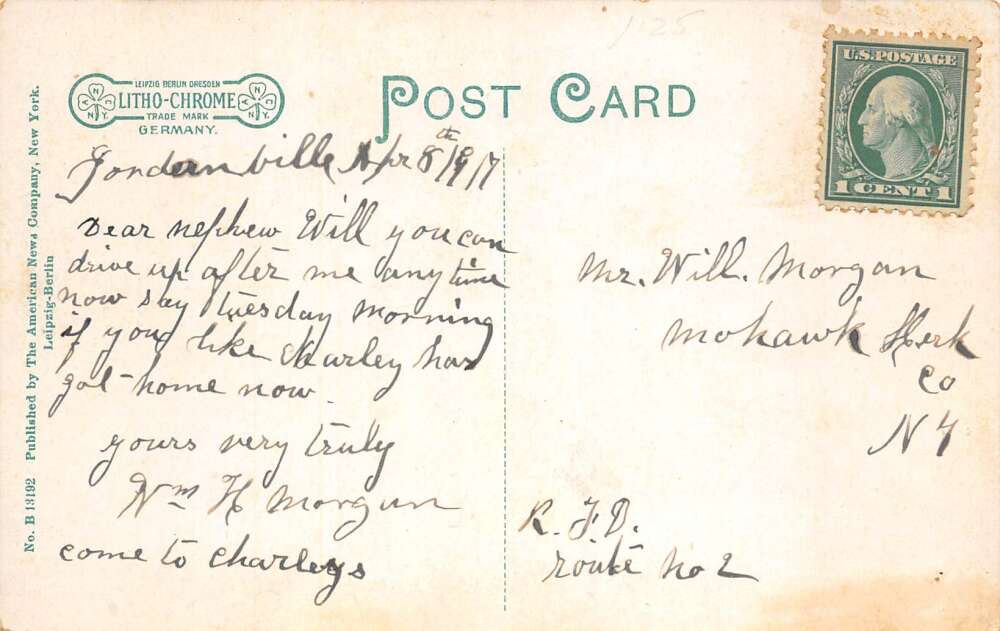 1.25
LEIPZIG BERLIN DRESDEN
LITHO-CHROME
TRADE MARK
GERMANY.
POST CARD
U.S. POSTAGE
1 CENT 1
No. B 13192 Published by The American News Company, New York.
Leipzig-Berlin
Jordanville Apr 8th 1917
Dear nephew Will you can
drive up after me any time
now say tuesday morning
if you like charley has
got home now
yours very truly
Wm H Morgan
come to charleys
Mr. Will. Morgan
Mohawk Herk
co
N Y
R. F. D.
route no 2